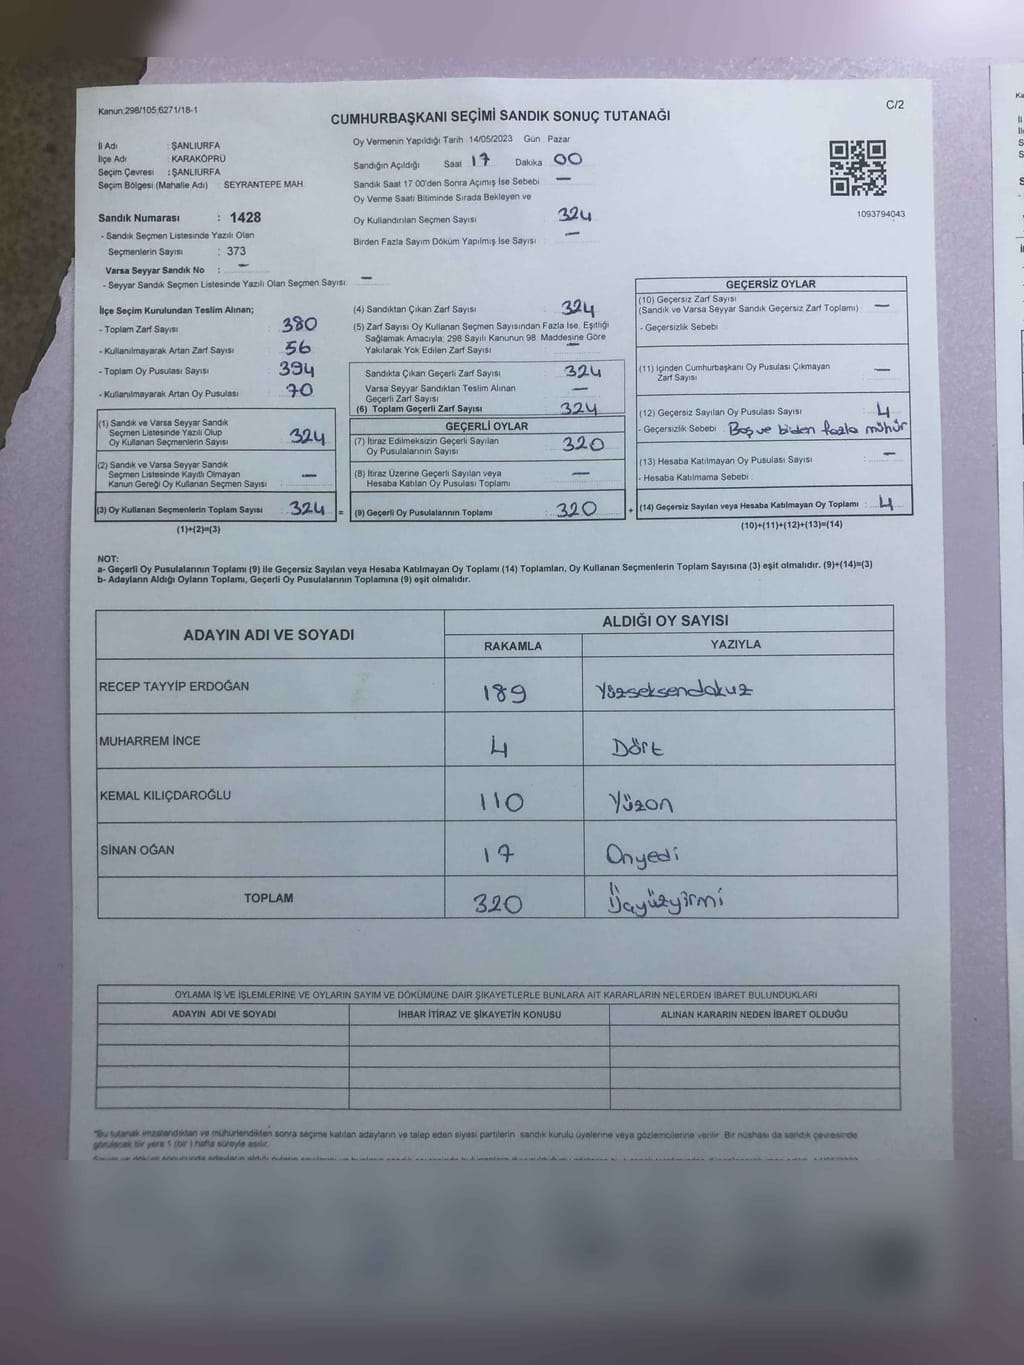 Kanun 298/105,6271/18-1
C/2
CUMHURBAŞKANI SEÇİMİ SANDIK SONUÇ TUTANAĞI
İl Adı : ŞANLIURFA
İlçe Adı : KARAKÖPRÜ
Seçim Çevresi : ŞANLIURFA
Seçim Bölgesi (Mahalle Adı) SEYRANTEPE MAH.
Sandık Numarası : 1428
- Sandık Seçmen Listesinde Yazılı Olan
Seçmenlerin Sayısı : 373
Varsa Seyyar Sandık No : —
- Seyyar Sandık Seçmen Listesinde Yazılı Olan Seçmen Sayısı: —
Oy Vermenin Yapıldığı Tarih 14/05/2023 Gün : Pazar
Sandığın Açıldığı Saat 17 Dakika 00
Sandık Saat 17 00'den Sonra Açımış İse Sebebi —
Oy Verme Saati Bitiminde Sırada Bekleyen ve
Oy Kullandırılan Seçmen Sayısı 324
Birden Fazla Sayım Döküm Yapılmış İse Sayısı —
1093794043
İlçe Seçim Kurulundan Teslim Alınan;
- Toplam Zarf Sayısı : 380
- Kullanılmayarak Artan Zarf Sayısı : 56
- Toplam Oy Pusulası Sayısı : 394
- Kullanılmayarak Artan Oy Pusulası : 70
(1) Sandık ve Varsa Seyyar Sandık
Seçmen Listesinde Yazılı Olup
Oy Kullanan Seçmenlerin Sayısı : 324
(2) Sandık ve Varsa Seyyar Sandık
Seçmen Listesinde Kayıtlı Olmayan
Kanun Gereği Oy Kullanan Seçmen Sayısı : —
(3) Oy Kullanan Seçmenlerin Toplam Sayısı : 324 =
(1)+(2)=(3)
(4) Sandıktan Çıkan Zarf Sayısı : 324
(5) Zarf Sayısı Oy Kullanan Seçmen Sayısından Fazla İse, Eşitliği
Sağlamak Amacıyla, 298 Sayılı Kanunun 98. Maddesine Göre
Yakılarak Yok Edilen Zarf Sayısı : —
Sandıkta Çıkan Geçerli Zarf Sayısı : 324
Varsa Seyyar Sandıktan Teslim Alınan
Geçerli Zarf Sayısı : —
(6) Toplam Geçerli Zarf Sayısı : 324
GEÇERLİ OYLAR
(7) İtiraz Edilmeksizin Geçerli Sayılan
Oy Pusulalarının Sayısı : 320
(8) İtiraz Üzerine Geçerli Sayılan veya
Hesaba Katılan Oy Pusulası Toplamı : —
(9) Geçerli Oy Pusulalarının Toplamı : 320 +
GEÇERSİZ OYLAR
(10) Geçersiz Zarf Sayısı
(Sandık ve Varsa Seyyar Sandık Geçersiz Zarf Toplamı) : —
- Geçersizlik Sebebi :
(11) İçinden Cumhurbaşkanı Oy Pusulası Çıkmayan
Zarf Sayısı : —
(12) Geçersiz Sayılan Oy Pusulası Sayısı : 4
- Geçersizlik Sebebi : Boş ve biden fazla mühür
(13) Hesaba Katılmayan Oy Pusulası Sayısı : —
- Hesaba Katılmama Sebebi :
(14) Geçersiz Sayılan veya Hesaba Katılmayan Oy Toplamı : 4
(10)+(11)+(12)+(13)=(14)
NOT:
a- Geçerli Oy Pusulalarının Toplamı (9) ile Geçersiz Sayılan veya Hesaba Katılmayan Oy Toplamı (14) Toplamları, Oy Kullanan Seçmenlerin Toplam Sayısına (3) eşit olmalıdır. (9)+(14)=(3)
b- Adayların Aldığı Oyların Toplamı, Geçerli Oy Pusulalarının Toplamına (9) eşit olmalıdır.
ADAYIN ADI VE SOYADI
ALDIĞI OY SAYISI
RAKAMLA YAZIYLA
RECEP TAYYİP ERDOĞAN 189 Yüzseksendokuz
MUHARREM İNCE 4 Dört
KEMAL KILIÇDAROĞLU 110 Yüzon
SİNAN OĞAN 17 Onyedi
TOPLAM 320 Üçyüzyirmi
OYLAMA İŞ VE İŞLEMLERİNE VE OYLARIN SAYIM VE DÖKÜMÜNE DAİR ŞİKAYETLERLE BUNLARA AİT KARARLARIN NELERDEN İBARET BULUNDUKLARI
ADAYIN ADI VE SOYADI İHBAR İTİRAZ VE ŞİKAYETİN KONUSU ALINAN KARARIN NEDEN İBARET OLDUĞU
*Bu tutanak imzalandıktan ve mühürlendikten sonra seçime katılan adayların ve talep eden siyasi partilerin sandık kurulu üyelerine veya gözlemcilerine verilir. Bir nüshası da sandık çevresinde
görülecek bir yere 1 (bir) hafta süreyle asılır.